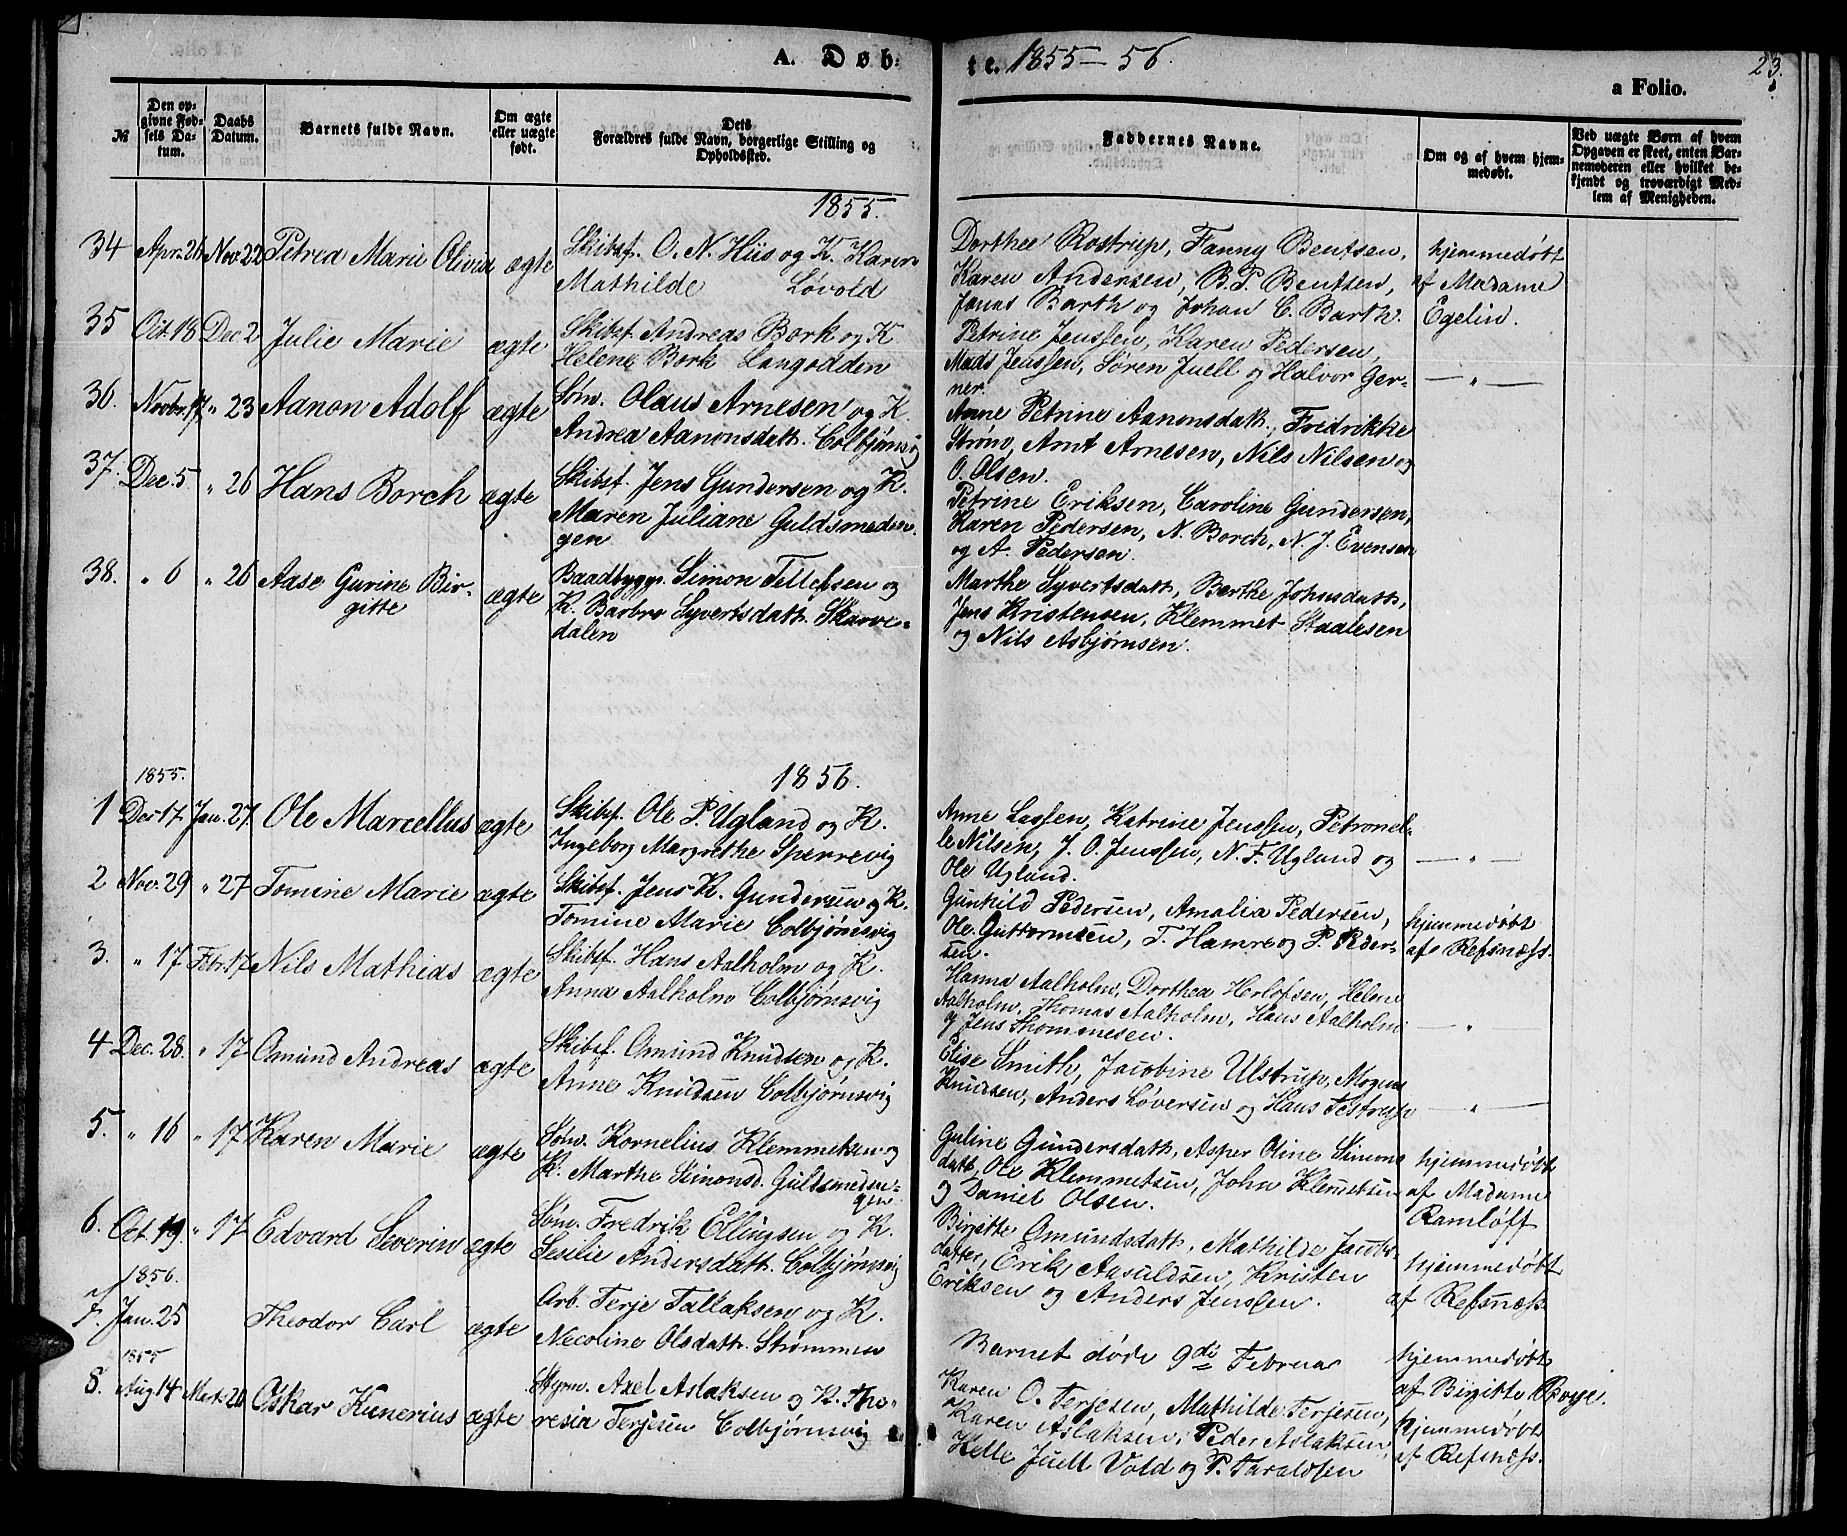 A. Døb- te. 1855-56.
23.
a Folio.
№
Den op-
givne Fød-
sels Da-
tum.
Daabs
Datum.
Barnets fulde Navn.
Om ægte
eller uægte
født.
Dets
Forældres fulde Navn, borgerlige Stilling og
Opholdssted.
Faddernes Navne.
Om og af hvem hjem-
medøbt.
Ved uægte Børn af hvem
Opgaven er skeet, enten Bar-
nemoderen eller hvilket be-
kjendt og troværdigt Med-
lem af Menigheden.
1855.
34 Apr. 26 Nov. 22 Petrea Marie Olivia ægte
Skibsf. O. N. Hiis og K. Karen
Mathilde Løvold
Dorthea Rostrup, Fanny Bentsen,
Karen Andersen, B. P. Bentsen,
Jonas Barth og Johan C. Barth.
hjemmedøbt
af Madame
Egelin.
35 Oct. 18 Dec 2 Julie Marie ægte
Skibsf. Andreas Bork og K.
Helene Bork Langodden
Petrine Jenssen, Karen Pedersen,
Mads Jenssen, Søren Juell og Halvor Ger-
ner.
— „ —
36. Novbr. 17 „ 23 Aanon Adolf ægte
Søm. Olaus Arnesen og K.
Andrea Aanonsdatt. Colbjørnsvig
Anne Petrine Aanonsdatt., Fredrikke
Strøm, Arnt Arnesen, Nils Nilsen og
O. Olsen.
37. Dec. 5. „ 26 Hans Borch ægte
Skibsf. Jens Gundersen og K.
Maren Juliane Guldsmeden-
gen
Petrine Eriksen, Caroline Gundersen,
Karen Pedersen, N. Borch, N. J. Evensen
og A. Pedersen.
38. „ 6 „ 26 Aase Gurine Bir-
gitte ægte
Baadbygg. Simon Tellefsen og
K. Barbro Syvertsdatt. Skarve-
dalen
Marthe Syvertsdatt, Berthe Johnsdatt,
Jens Kristensen, Klemmet Staalesen
og Nils Asbjørnsen.
1855.
1856.
1 Dec 17. Jan. 27. Ole Marcellus ægte
Skibsf. Ole P. Ugland og K.
Ingeborg Margrethe Sperrevig
Anne Lassen, Katrine Jenssen, Petronel-
le Nilsen, J. O. Jenssen, N. F. Ugland og
Ole Ugland.
— „ —
2 Nov. 29 „ 27 Tomine Marie ægte
Skibsf. Jens K. Gundersen og K.
Tomine Marie Colbjørnsvig
Gunhild Pedersen, Amalia Pedersen,
Ole Guttormsen, T. Hamre og P. Peder-
sen.
hjemmedøbt
af Refsnæss.
3. „ 17 Febr. 17 Nils Mathias ægte
Skibsf. Hans Aalholm og K.
Anna Aalholm Colbjørnsvig
Hanna Aalholm, Dorthea Herlofsen, Helene
Aalholm, Thomas Aalholm, Hans Aalholm
og Jens Thommesen.
— „ —
4 Dec. 28. „ 17 Omund Andreas ægte
Skibsf. Omund Knudsen og K.
Anne Knudsen Colbjørnsvig
Elise Smith, Jacobine Ulstrup, Mogens
Knudsen, Anders Løversen og Hans Testrup
— „ —
5. „ 16 „ 17 Karen Marie ægte
Søm. Kornelius Klemmetsen og
K. Marthe Simonsd. Guldsmeden-
gen
Guline Gundersdatt, Asper Oline Simons
datt, Ole Klemmetsen, John Klemetsen
og Daniel Olsen.
hjemmedøbt
af Madame
Ramløff
6. Oct 19. „ 17 Edvard Severin ægte
Søm. Fredrik Ellingsen og K.
Sesilie Andersdatt. Colbjørnsvig
Birgitte Omundsdatt, Mathilde Jacobs-
datter, Erik Aasuldsen, Kristen
Eriksen og Anders Jenssen.
hjemmedøbt
af Refsnæss
1856.
7. Jan. 25 Theodor Carl ægte
Arb. Terje Tallaksen og K.
Necoline Olsdatt. Strømmen
Barnet døde 9de Februar
hjemmedøbt
af Birgitte Boye.
1855
8. Aug 14 Marts 20 Oskar Kunerius ægte
Styrm. Axel Aslaksen og K. The-
resia Terjesen Colbjørnsvig
Karen O. Terjesen, Mathilde Terjesen,
Karen Aslaksen, Peder Aslaksen,
Kelle Juell Vold og P. Taraldsen
hjemmedøbt
af Refsnæss.